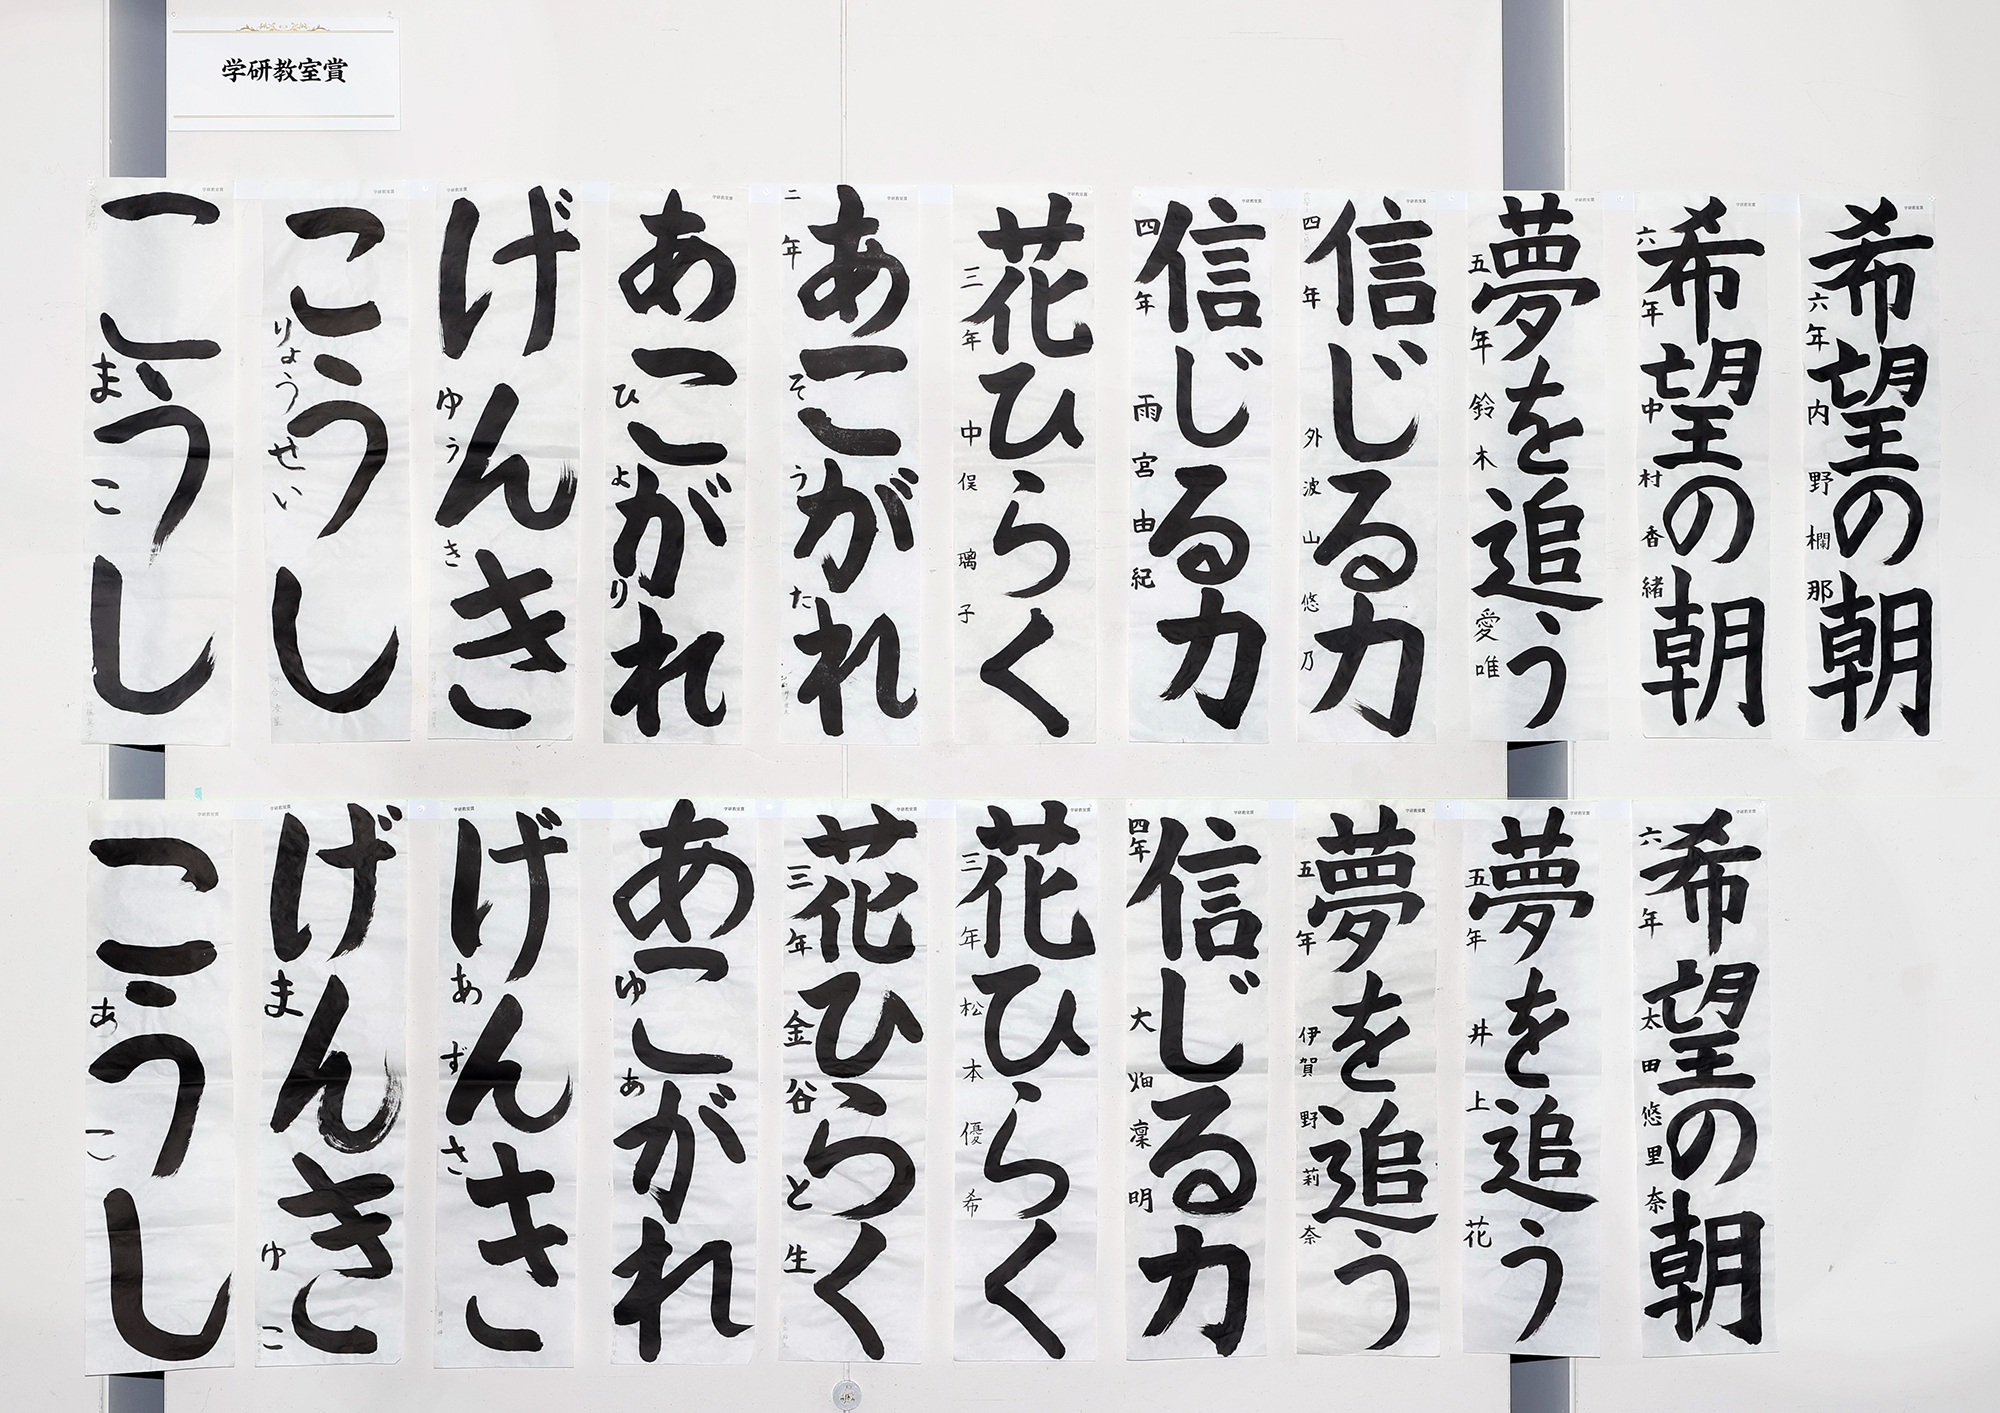 学研教室賞
希望の朝
六年 内野欄那
希望の朝
六年 中村香緒
夢を追う
五年 鈴木愛唯
信じる力
四年 外波山悠乃
信じる力
四年 雨宮由紀
花ひらく
三年 中俣璃子
あこがれ
二年 そうた
あこがれ
ひより
げんき
ゆうき
こうし
りょうせい
こうし
まこ
希望の朝
六年 太田悠里奈
夢を追う
五年 井上花
夢を追う
五年 伊賀野莉奈
信じる力
四年 大畑凜明
花ひらく
三年 松本優希
花ひらく
三年 金谷と生
あこがれ
ゆあ
げんき
あずさ
げんき
まゆこ
こうし
あこ